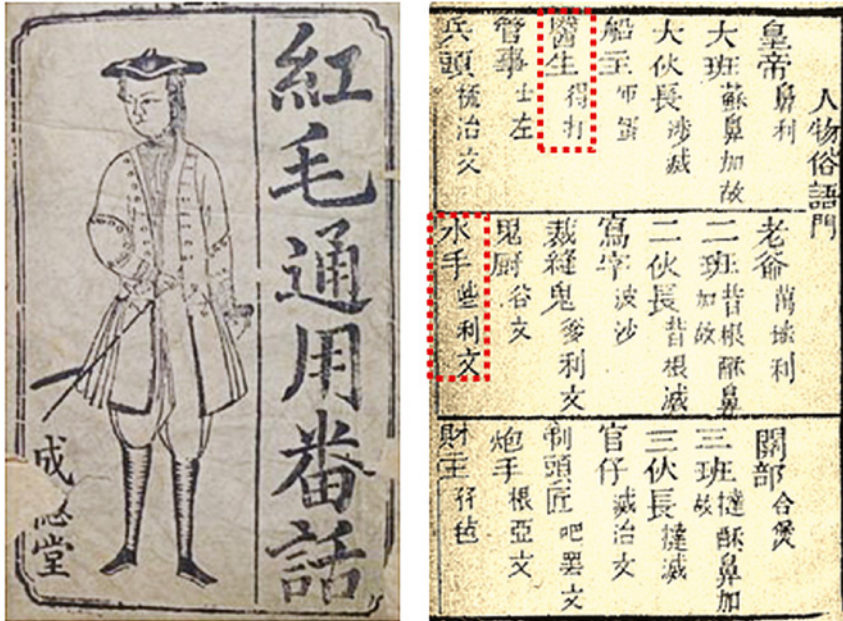 紅毛通用番話
成德堂
人物俗語門
皇帝 鼻利
大班 蘇鼻加故
大伙長 涉滅
船主
醫生 得打
管事 士左
兵頭 梳治文
老爺 萬埭利
二班 昔根酥鼻加故
二伙長 昔根滅
寫字 波沙
裁縫鬼 爹利文
鬼厨 谷文
水手 些利文
關部 合煲
三班 撻酥鼻加故
三伙長 撻滅
官仔 滅治文
剃頭匠 吧罷文
炮手 根亞文
財主 孖毡